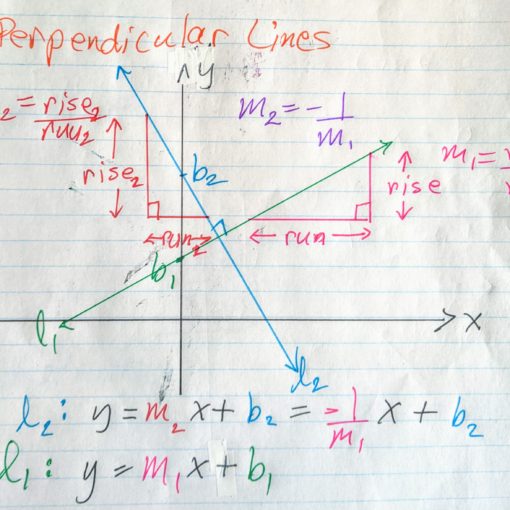 Perpendicular Lines
y
2 = rise₂/run₂
m₂ = - 1/m₁
m₁ =
rise₂
b₂
rise
run₂
run
b₁
l₁
x
l₂
l₂: y = m₂x + b₂ = -1/m₁ x + b₂
l₁: y = m₁x + b₁